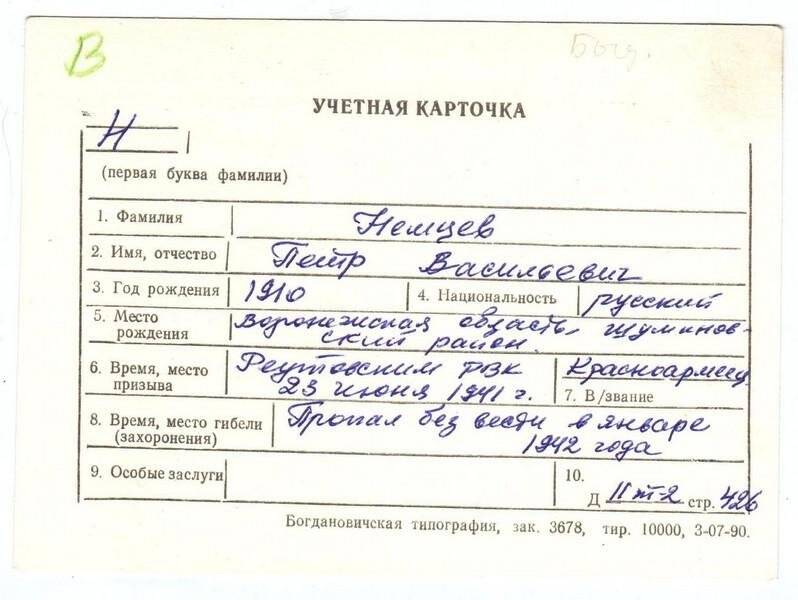 В
Богд.
УЧЕТНАЯ КАРТОЧКА
Н
(первая буква фамилии)
1. Фамилия Немцев
2. Имя, отчество Петр Васильевич
3. Год рождения 1910 4. Национальность русский
5. Место Воронежская область,
рождения ский район.
6. Время, место Реутовским РВК Красноармеец
призыва 23 июня 1941 г. 7. В/звание
8. Время, место гибели Пропал без вести в январе
(захоронения) 1942 года
9. Особые заслуги 10.
Д II т-2 стр. 426
Богдановичская типография, зак. 3678, тир. 10000, 3-07-90.